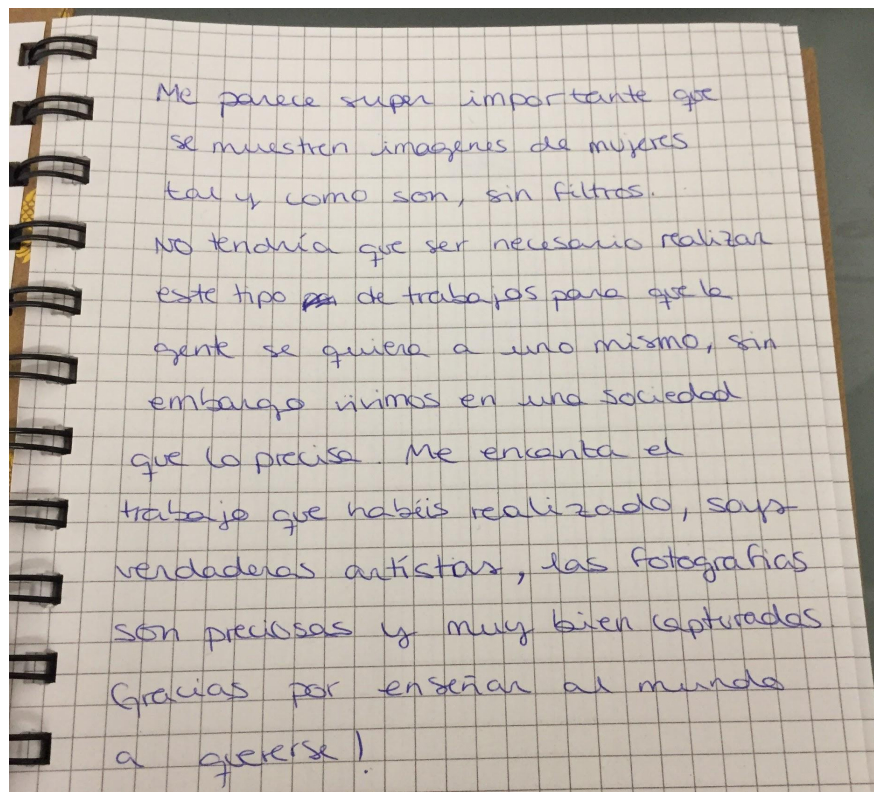 Me parece super importante que
se muestren imagenes de mujeres
tal y como son, sin filtros.
NO tendría que ser necesario realizar
este tipo de trabajos para que la
gente se quiera a uno mismo, sin
embargo vivimos en una sociedad
que lo precisa. Me encanta el
trabajo que habéis realizado, soys
verdaderas artístas, las fotografias
son preciosas y muy bien capturadas
Gracias por enseñar al mundo
a quererse!